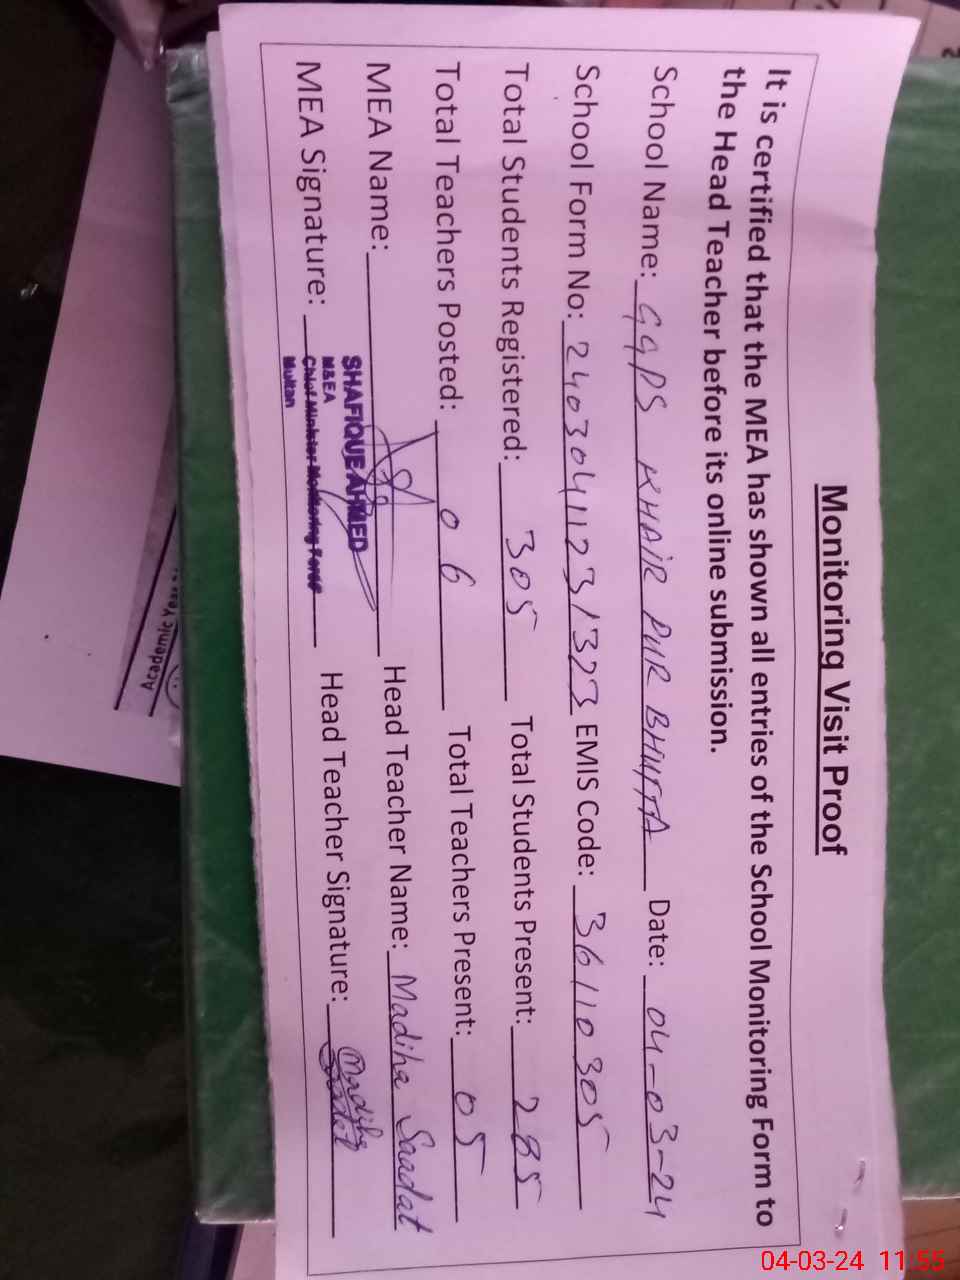 Monitoring Visit Proof
It is certified that the MEA has shown all entries of the School Monitoring Form to
the Head Teacher before its online submission.
School Name: GGPS KHAIR PUR BHUTTA Date: 04-03-24
School Form No: 24030411231323 EMIS Code: 36110305
Total Students Registered: 305 Total Students Present: 285
Total Teachers Posted: 06 Total Teachers Present: 05
MEA Name: Head Teacher Name: Madiha Saadat
SHAFIQUE AHMED
M&EA
MEA Signature: Chief Minister Monitoring Force Head Teacher Signature: Madiha Saadat
Multan
Academic Yea
04-03-24 11:55